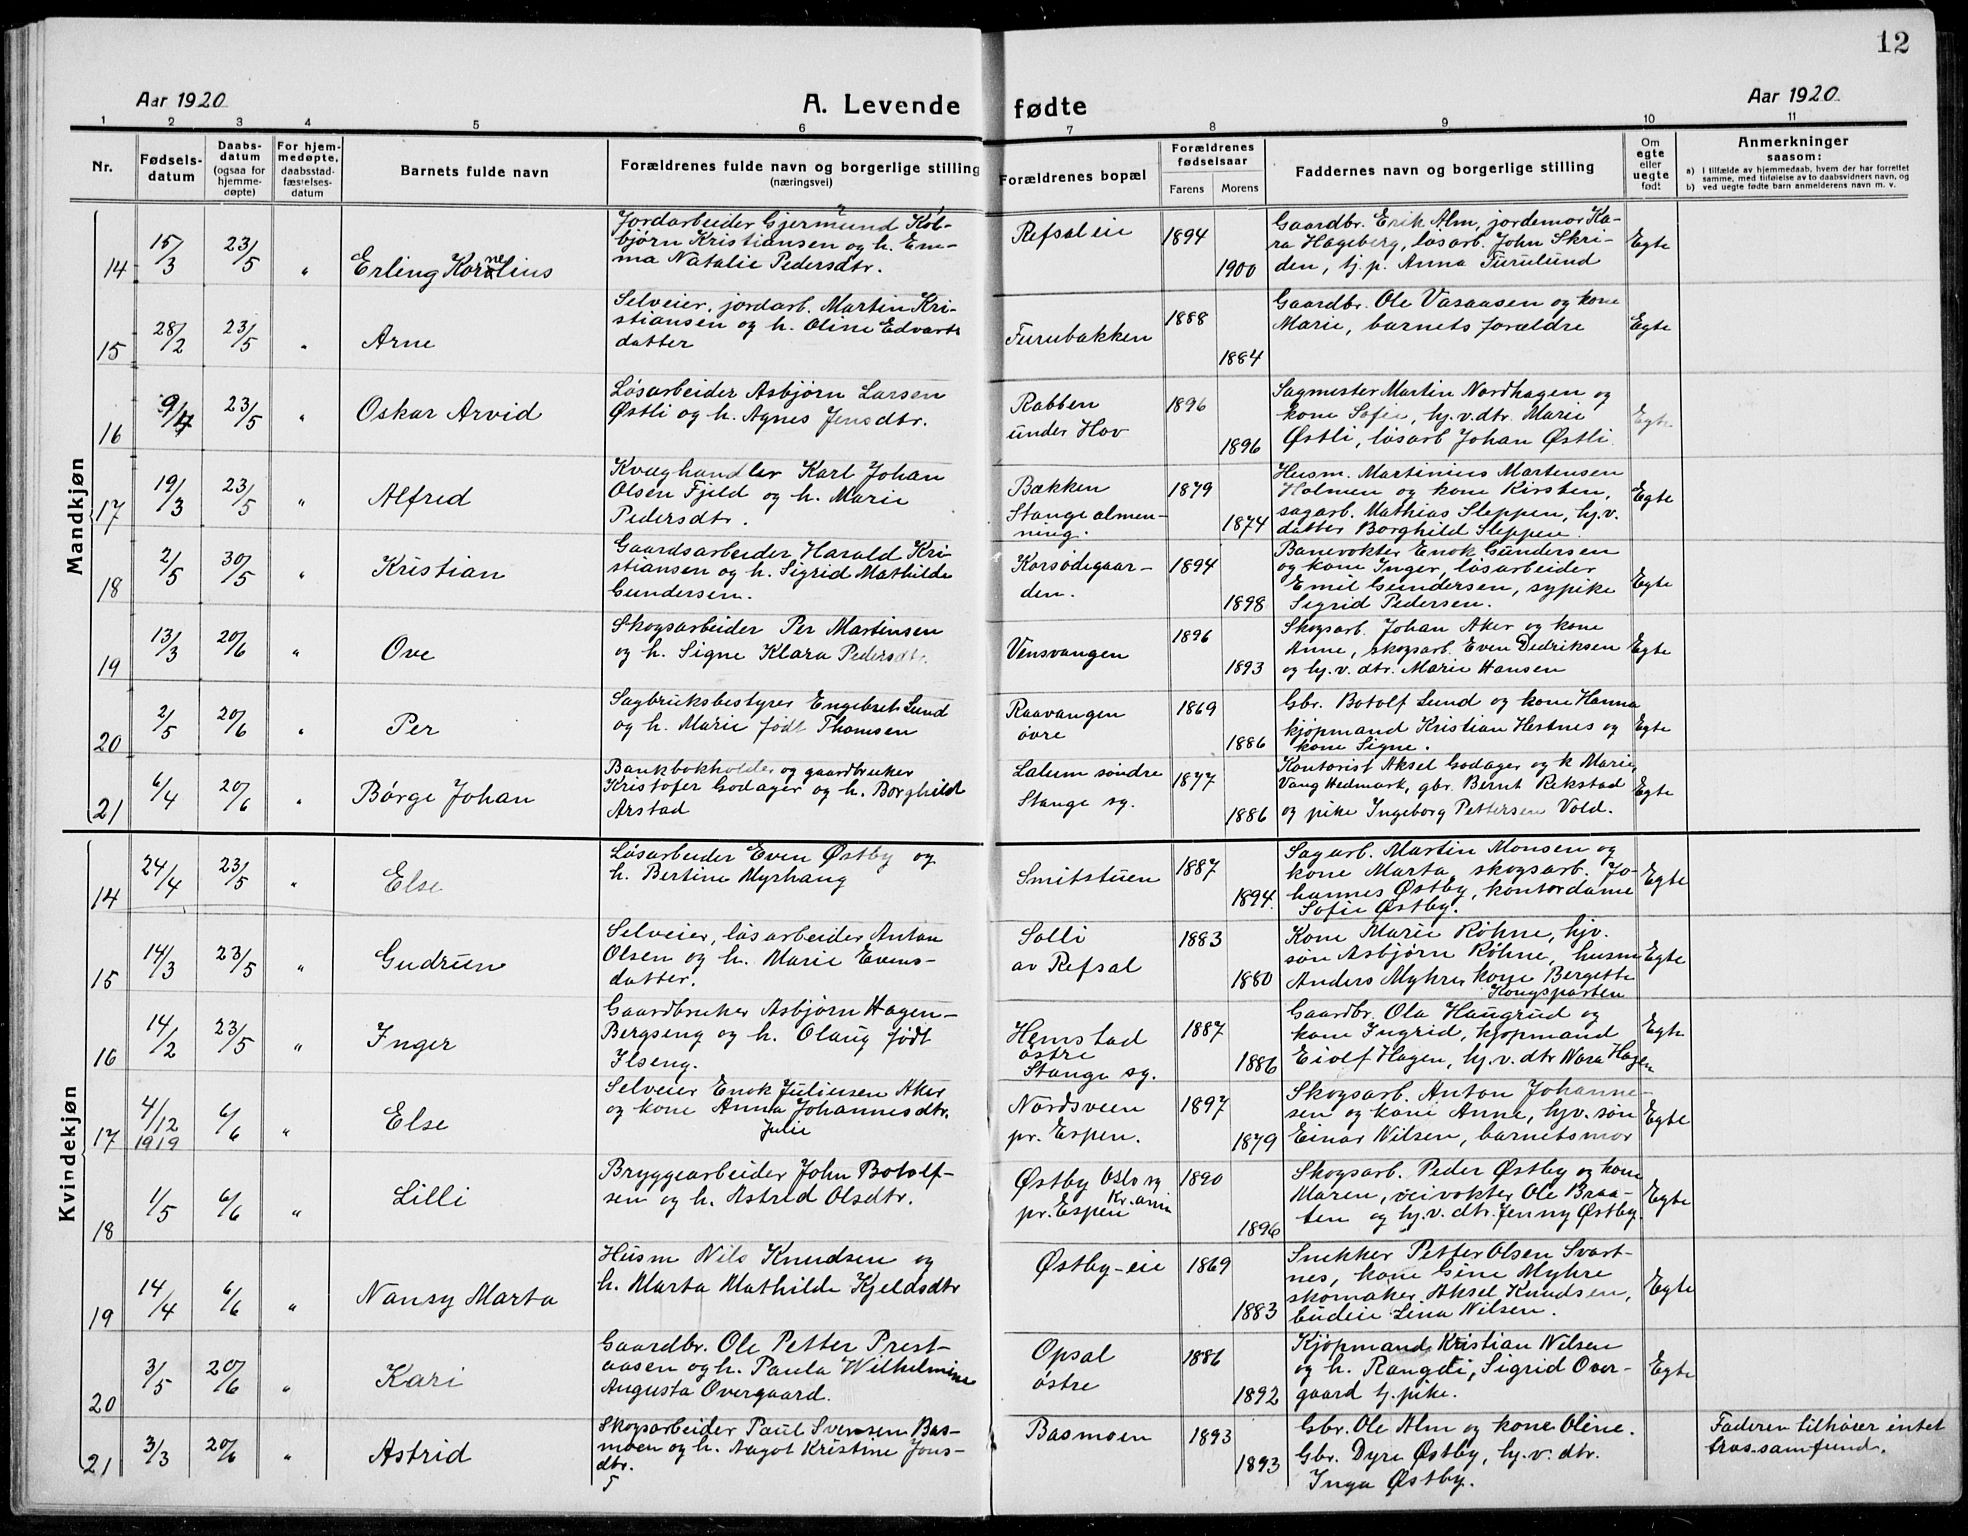 12
Aar 1920
A. Levende fødte
Aar 1920
1 2 3 4 5 6 7 8 9 10 11
Nr.
Fødsels-
datum
Daabs-
datum
(ogsaa for
hjemme-
døpte)
For hjem-
medøpte,
daabsstad-
fæstelses-
datum
Barnets fulde navn
Forældrenes fulde navn og borgerlige stilling
(næringsvei)
Forældrenes bopæl
Forældrenes
fødselsaar
Farens Morens
Faddernes navn og borgerlige stilling
Om
egte
eller
uegte
født
Anmerkninger
saasom:
a) I tilfælde av hjemmedaab, hvem der har forrettet
samme, med tilføielse av to daabsvidners navn, og
b) ved uegte fødte barn anmelderens navn m. v.
Mandkjøn
14 15/3 23/5 " Erling Kornelius
Jordarbeider Gjermund Kol-
bjørn Kristiansen og h. Em-
ma Natalie Pedersdtr.
Refsal eie 1894 1900
Gaardbr. Erik Alm, jordemor Ka-
ra Hageberg, løsarb. John Skri-
den, tj. p. Anna Furulund
Egte
15 28/2 23/5 " Arne
Selveier, jordarb. Martin Kri-
stiansen og h. Oline Edvarts
datter
Furubakken 1888 1884
Gaardbr. Ole Vasaasen og kone
Marie, barnets forældre
Egte
16 9/4 23/5 " Oskar Arvid
Løsarbeider Asbjørn Larsen
Østli og h. Agnes Jensdtr.
Rabben
under Hov
1896 1896
Sagmester Martin Nordhagen og
kone Sofie, hj.v.dtr. Marie
Østli, løsarb Johan Østli.
Egte
17 19/3 23/5 " Alfred
Kvæghandler Karl Johan
Olsen Fjeld og h. Marie
Pedersdtr.
Bækken
Stange almen-
ning.
1879 1874
Husm. Martinius Martensen
Holmen og kone Kirsten,
sagarb. Mathias Sleppen, hj.v.
datter Borghild Sleppen.
Egte
18 2/5 30/5 " Kristian
Gaardsarbeider Harald Kri-
stiansen og h. Sigrid Mathilde
Gundersen.
Korsødegaar-
den.
1894 1898
Banevokter Enok Gundersen
og kone Inger, løsarbeider
Emil Gundersen, sypike
Sigrid Pedersen.
Egte
19 13/3 20/6 " Ove
Skogsarbeider Per Martinsen
og h. Signe Klara Pedersdtr.
Vensvangen 1896 1893
Skogsarb. Johan Aker og kone
Anne, skogsarb. Even Dedriksen
og hj.v. dtr. Marie Hansen
Egte
20 2/5 20/6 " Per
Sagbruksbestyrer Engebret Lund
og h. Marie født Thomsen
Raavangen
øvre
1869 1886
Gbr. Botolf Lund og kone Hanna
kjøpmand Kristian Hestnes og
kone Signe.
Egte
21 6/4 20/6 " Børge Johan
Bankbokholder og gaardbruker
Kristofer Godager og h. Borghild
Arstad
Lalum søndre
Stange sg.
1877 1886
Kontorist Aksel Godager og k Marie,
Vang Hedmark, gbr. Bernt Rekstad
og pike Ingeborg Pettersen Vold.
Egte
Kvindekjøn
14 24/4 23/5 " Else
Løsarbeider Even Østby og
h. Bertine Myrhaug
Smitstuen 1887 1894.
Sagarb. Martin Monsen og
kone Marta, skogsarb. Jo-
hannes Østby, kontordame
Sofie Østby.
Egte
15 14/3 23/5 " Gudrun
Selveier, løsarbeider Anton
Olsen og h. Marie Evens-
datter.
Solli
av Refsal
1883 1880
Kone Marie Røhne, hjv.
søn Asbjørn Røhne, husm
Anders Myhre, kone Bergette
Kongsparten
Egte
16 14/2 23/5 " Inger
Gaardbruker Asbjørn Hagen-
Bergseng og h. Olaug født
Ilseng.
Hemstad
østre
Stange sg.
1887 1886
Gaardbr. Ola Haugrud og
kone Ingrid, kjøpmand
Eiolf Hagen, hj.v. dtr Nora Hagen
Egte
17 4/12 1919 6/6 " Else
Selveier Enok Juliussen Aker
og kone Anna Johannesdtr.
Julie
Nordsveen
pr. Espen.
1897 1879
Skogsarb. Anton Johanne-
sen og kone Anne, hjv. søn
Einar Nilsen, barnets mor
Egte
18 1/5 6/6 " Lilli
Bryggearbeider John Botolf-
sen og h. Astrid Olsdtr.
Østby Oslo sg
pr. Espen Kr.ania
1890 1896
Skogsarb. Peder Østby og kone
Maren, veivokter Ole Braa-
ten og hj.v. dtr. Jenny Østby.
Egte
19 14/4 6/6 " Nansy Marta
Husm Nils Knudsen og
h. Marta Mathilde Kjeldsdtr
Østby-eie 1869 1883
Snekker Petter Olsen Svart-
nes, kone Gine Myhre
skomaker Aksel Knudsen,
budeie Lina Nilsen.
Egte
20 3/5 20/6 " Kari
Gaardbr. Ole Petter Prest-
aasen og h. Paula Wilhelmine
Augusta Overgaard.
Opsal
østre
1886 1892
Kjøpmand Kristian Nilsen
og h. Rangdi, Sigrid Over-
gaard tj. pike.
Egte
21 3/3 20/6 " Astrid
Skogsarbeider Paul Svensen Bas-
moen og h. Nagot Kristine Jons-
dtr.
Basmoen 1893 1893
Gbr. Ole Alm og kone Oline.
Gbr. Dyre Østby, hj.v. dtr.
Inga Østby.
Faderen tilhører intet
trossamfund.